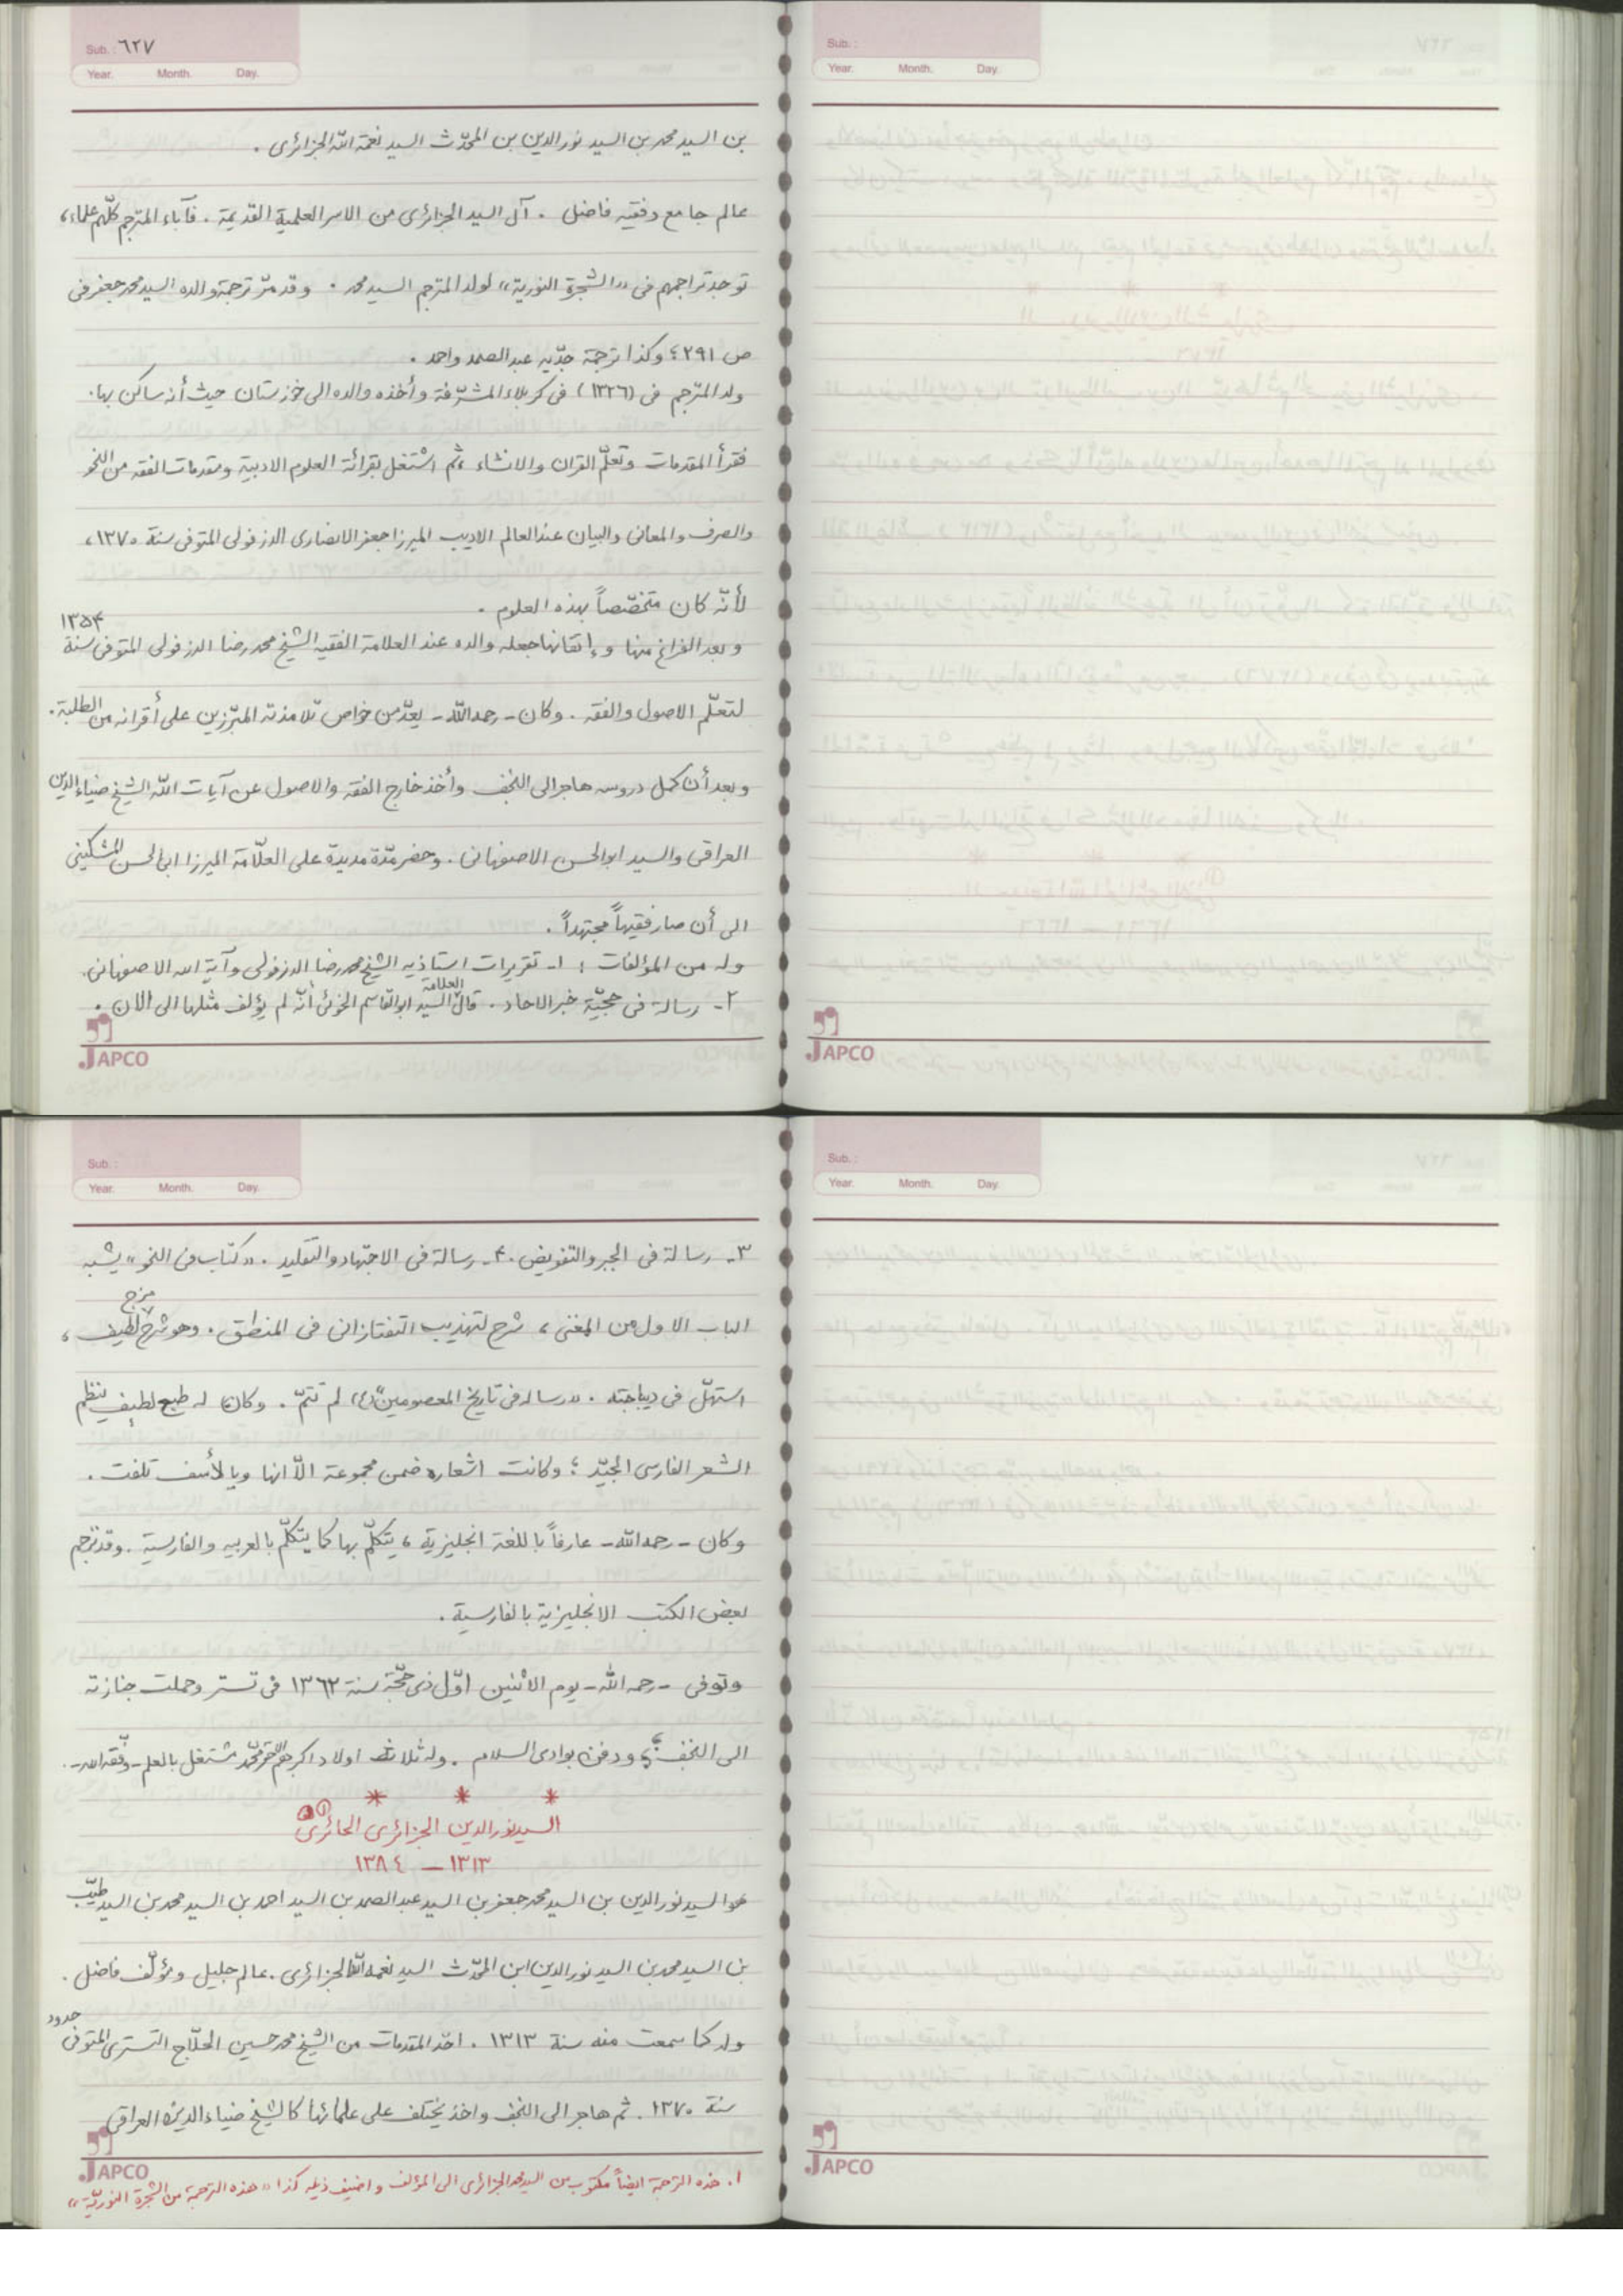 Sub. : ٦٢٧
Year. Month. Day.
بن السيد محمد بن السيد نور الدين بن المحدّث السيد نعمة الله الجزائرى .
عالم جامع وفقيه فاضل . آل السيد الجزائرى من الاسر العلمية القديمة . فآباء المترجم كلّهم علماء ،
توجد تراجمهم فى «الشجرة النورية» لولد المترجم السيد محمد . وقد مرّ ترجمة والده السيد محمد جعفر فى
ص ٢٩١ ؛ وكذا ترجمة جدّيه عبد الصمد واحمد .
ولد المترجم فى (١٣٢٦) فى كربلاء المشرّفة وأخذه والده الى خوزستان حيث أنه ساكن بها .
فقرأ المقدمات وتعلّم القران والانشاء ، ثم اشتغل بقرائة العلوم الادبية ومقدمات الفقه من النحو
والصرف والمعانى والبيان عند العالم الاديب الميرزا جعفر الانصارى الدزفولى المتوفى سنة ١٣٧٠ ،
لأنّه كان متخصّصاً بهذه العلوم .
وبعد الفراغ منها وإتقانها جعله والده عند العلامة الفقيه الشيخ محمد رضا الدزفولى المتوفى سنة ١٣٥۴
لتعلّم الاصول والفقه . وكان - رحمه الله - يعدّ من خواص تلامذته المبرّزين على أقرانه من الطلبة .
وبعد أن كمل دروسه هاجر الى النجف وأخذ خارج الفقه والاصول عن آيات الله الشيخ ضياء الدين
العراقى والسيد ابوالحسن الاصفهانى . وحضر مدّة مديدة على العلّامة الميرزا ابى الحسن المشكينى
الى أن صار فقيهاً مجتهداً .
وله من المؤلفات : ١- تقريرات استاذيه الشيخ محمد رضا الدزفولى وآية الله الاصفهانى .
٢- رسالة فى حجيّة خبر الاحاد . قال العلامة السيد ابوالقاسم الخوئى أنّه لم يؤلف مثلها الى الان .
JAPCO
Sub. :
Year. Month. Day.
JAPCO
Sub. :
Year. Month. Day.
٣- رسالة فى الجبر والتفويض . ۴- رسالة فى الاجتهاد والتقليد . «كتاب فى النحو» يشبه
الباب الاول من المغنى ، شرح لتهذيب التفتازانى فى المنطق . وهو شرح مزج لطيف ،
استهلّ فى ديباجته . «رساله فى تاريخ المعصومين(ع)» لم تتمّ . وكان له طبع لطيف ينظم
الشعر الفارسى الجيّد ؛ وكانت اشعاره ضمن مجموعة الّا انها وبالأسف تلفت .
وكان - رحمه الله - عارفاً باللغة انجليزية ، يتكلّم بها كما يتكلّم بالعربيه والفارسية . وقد ترجم
بعض الكتب الانجليزية بالفارسية .
وتوفى - رحمه الله - يوم الاثنين اوّل ذى حجّة سنة ١٣٦٢ فى تستر وحملت جنازته
الى النجف ودفن بوادى السلام . وله ثلاث اولاد اكبرهم محمّد مشتغل بالعلم - وفّقه الله - .
* * *
السيد نور الدين الجزائرى الحائرى (١)
١٣١٣ – ١٣٨٤
هو السيد نور الدين بن السيد محمد جعفر بن السيد عبد الصمد بن السيد احمد بن السيد محمد بن السيد طيّب
بن السيد محمد بن السيد نور الدين ابن المحدّث السيد نعمة الله الجزائرى . عالم جليل ومؤلّف فاضل .
ولد كما سمعت منه سنة ١٣١٣ . اخذ المقدمات من الشيخ محمد حسين الحلّاج التسترى المتوفى حدود
سنة ١٣٧٠ . ثم هاجر الى النجف واخذ يختلف على علمائها كالشيخ ضياء الدين العراقى
JAPCO
١. هذه الترجمة ايضاً مكتوب من السيد محمد الجزائرى الى المؤلف واضيف ذيله كذا «هذه الترجمة من الشجرة النوريّة»
Sub. :
Year. Month. Day.
JAPCO